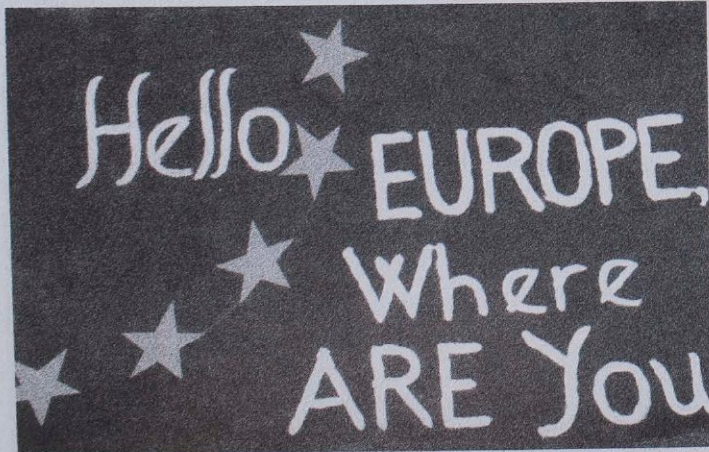 Hello
EUROPE,
Where
ARE You